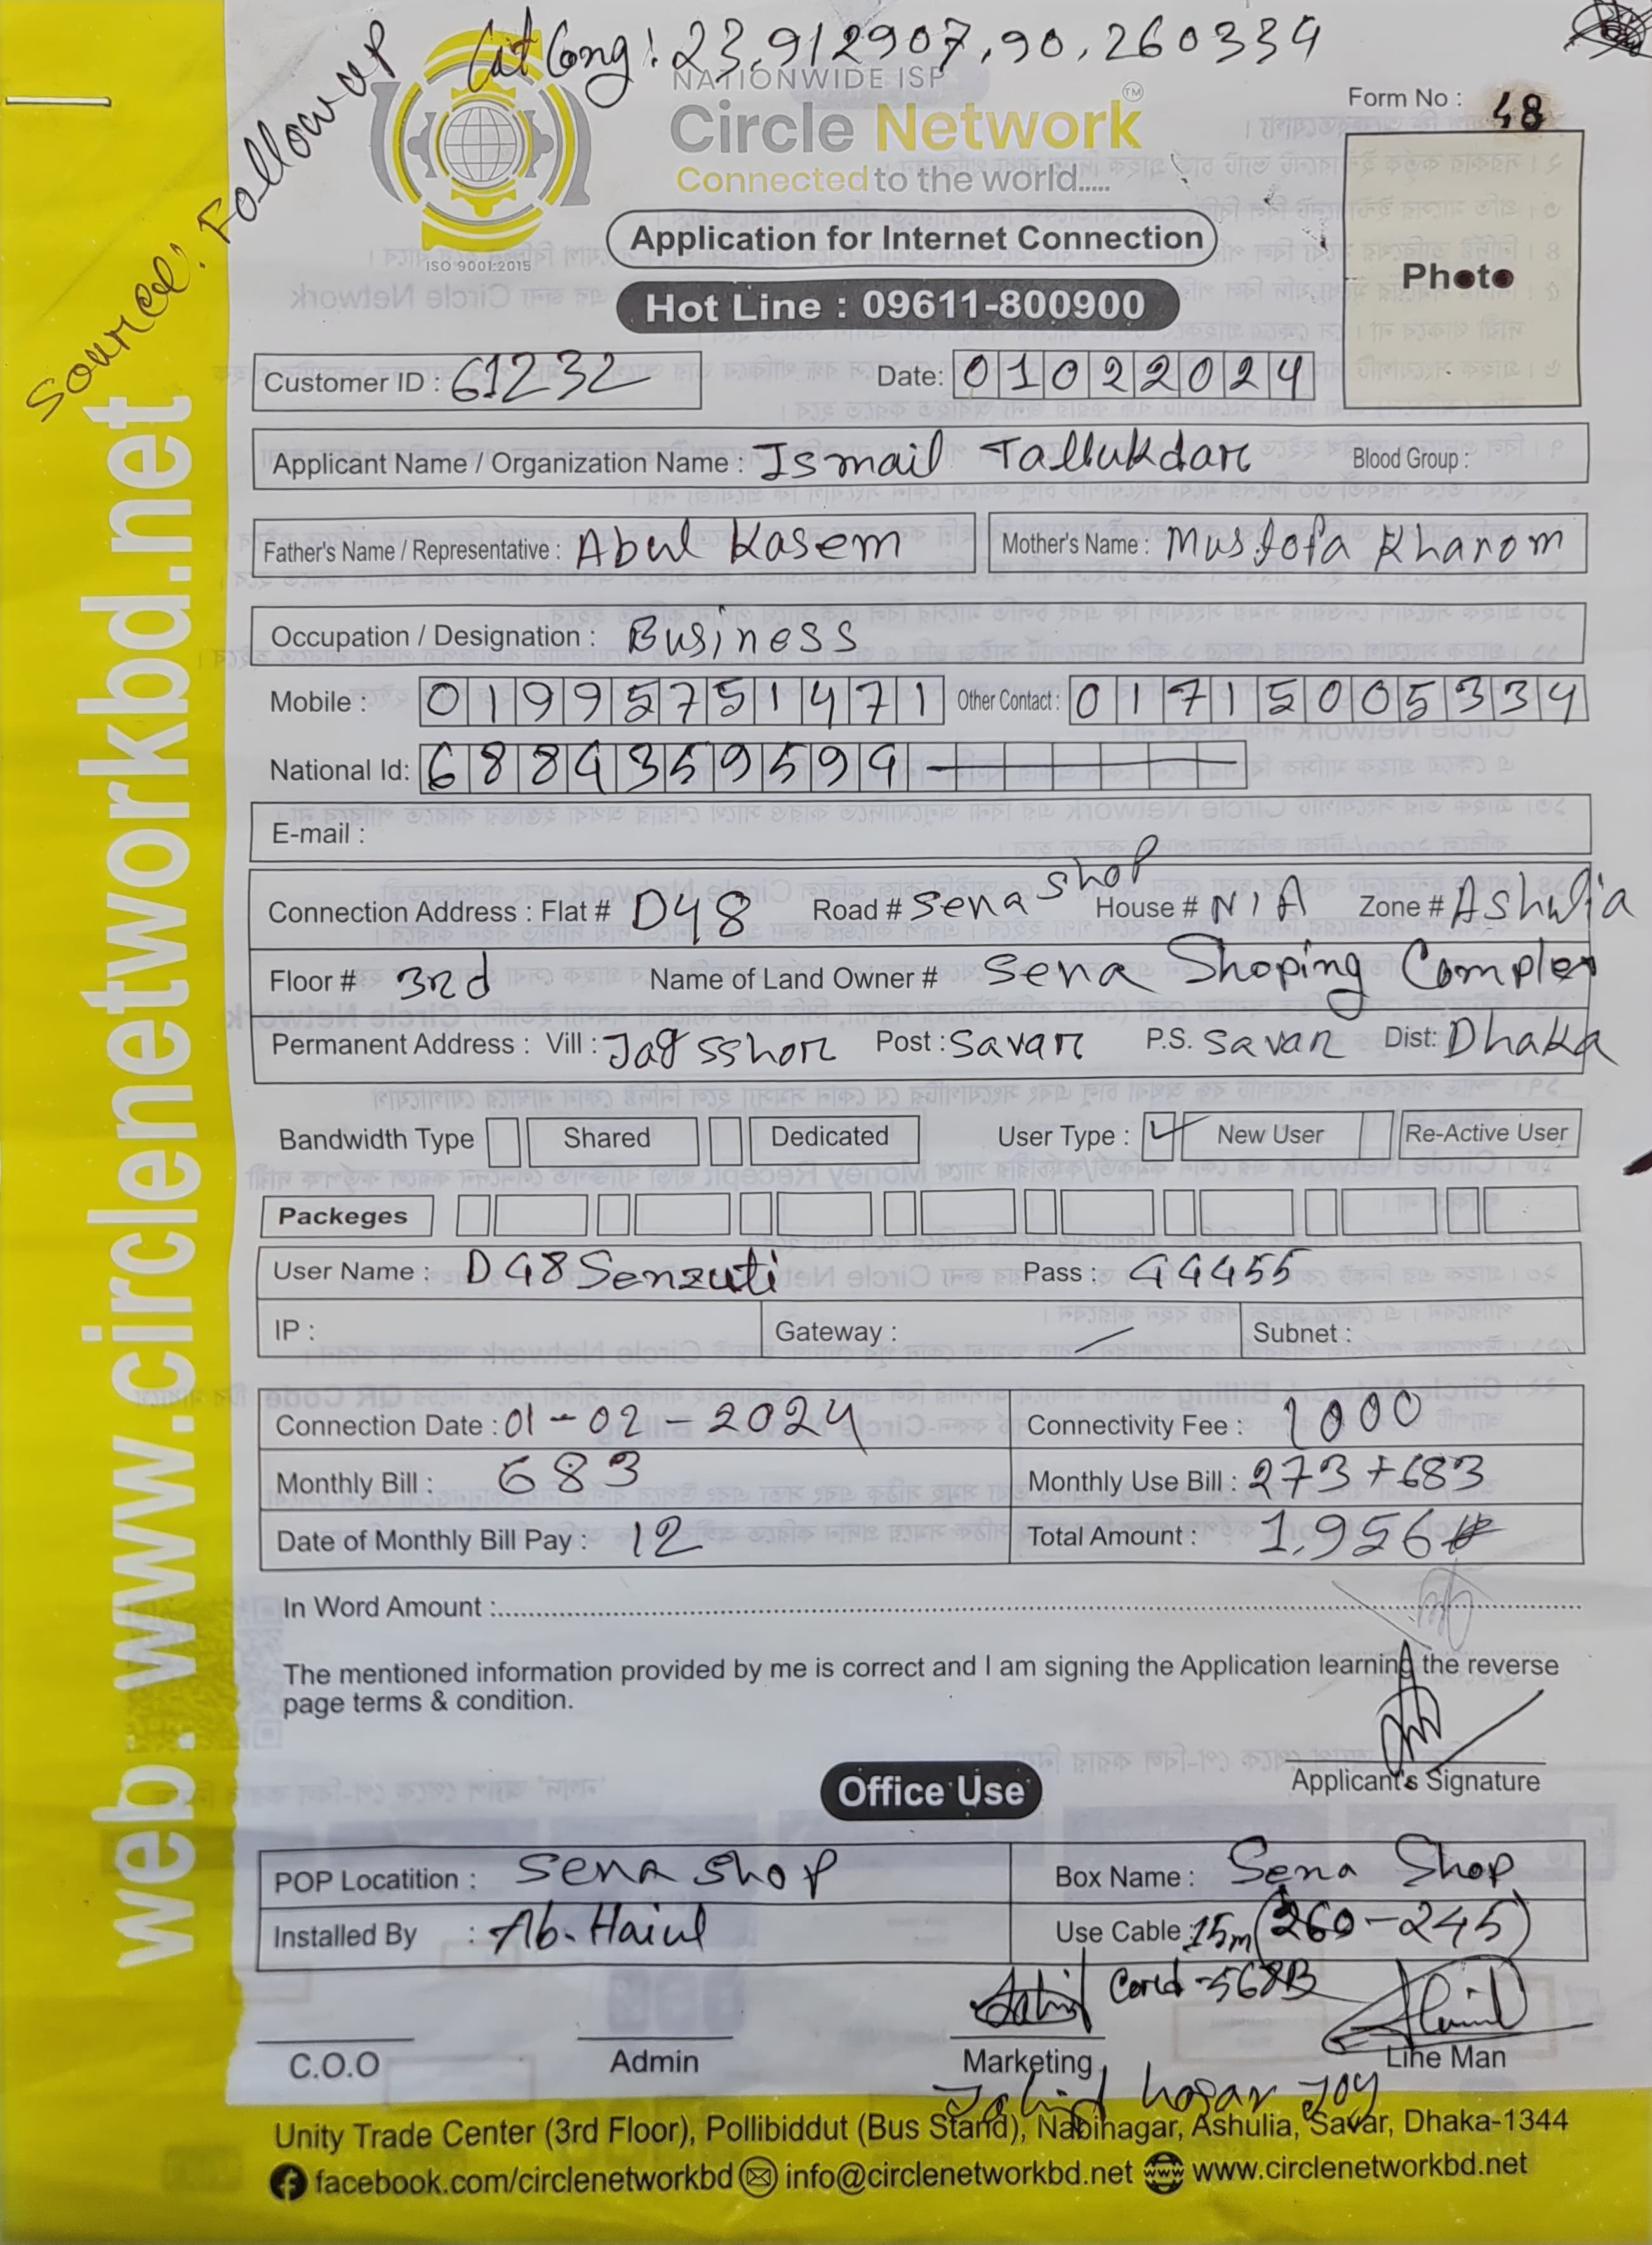 Lat Long: 23.912907, 90.260334
Source: Follow up
NATIONWIDE ISP
Circle Network TM
Connected to the world.....
ISO 9001:2015
Form No : 48
Application for Internet Connection
Photo
Hot Line : 09611-800900
Customer ID : 61232 Date: 01022024
Applicant Name / Organization Name : Ismail Tallukdar Blood Group :
Father's Name / Representative : Abul Kasem Mother's Name : Mustofa Khanom
Occupation / Designation : Business
Mobile : 01995751471 Other Contact : 01715005334
National Id: 6884359594
E-mail :
Connection Address : Flat # D48 Road # Sena shop House # N/A Zone # Ashulia
Floor # 3rd Name of Land Owner # Sena Shoping Complex
Permanent Address : Vill : Post : Savar P.S. Savar Dist: Dhaka
Bandwidth Type Shared Dedicated User Type : ✓ New User Re-Active User
Packeges
User Name : D48Senzuti Pass : 44455
IP : Gateway : Subnet :
Connection Date : 01-02-2024 Connectivity Fee : 1000
Monthly Bill : 683 Monthly Use Bill : 273+683
Date of Monthly Bill Pay : 12 Total Amount : 1,956
In Word Amount :
The mentioned information provided by me is correct and I am signing the Application learning the reverse
page terms & condition.
Applicant's Signature
Office Use
POP Locatition : Sena Shop Box Name : Sena Shop
Installed By : Ab. Haiul Use Cable : 15m (260-245)
C.O.O Admin Marketing Line Man
Unity Trade Center (3rd Floor), Pollibiddut (Bus Stand), Nabinagar, Ashulia, Savar, Dhaka-1344
facebook.com/circlenetworkbd info@circlenetworkbd.net www www.circlenetworkbd.net
web: www.circlenetworkbd.net